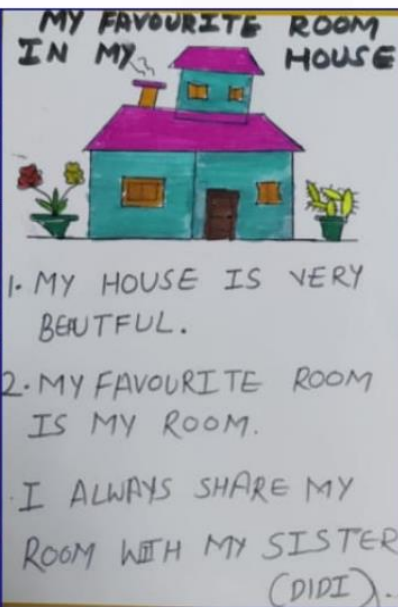 MY FAVOURITE ROOM
IN MY HOUSE
1. MY HOUSE IS VERY
BEUTFUL.
2. MY FAVOURITE ROOM
IS MY ROOM.
. I ALWAYS SHARE MY
ROOM WITH MY SISTER
(DIDI).